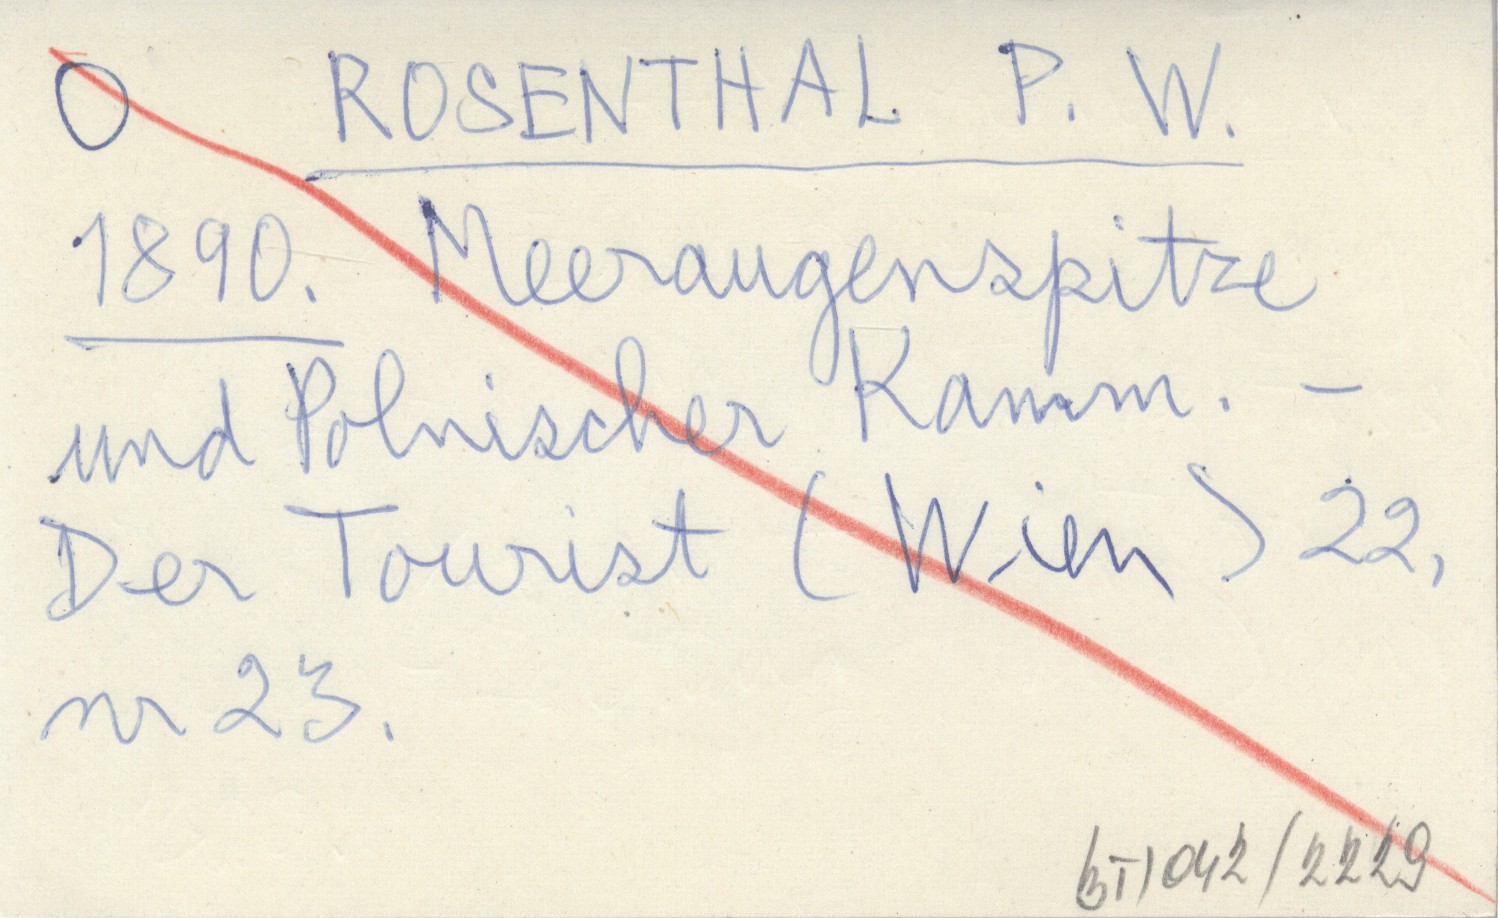 O ROSENTHAL P. W.
1890. Meeraugenspitze
und Polnischer Kamm. –
Der Tourist (Wien) 22,
nr 23.
BT/042/2229